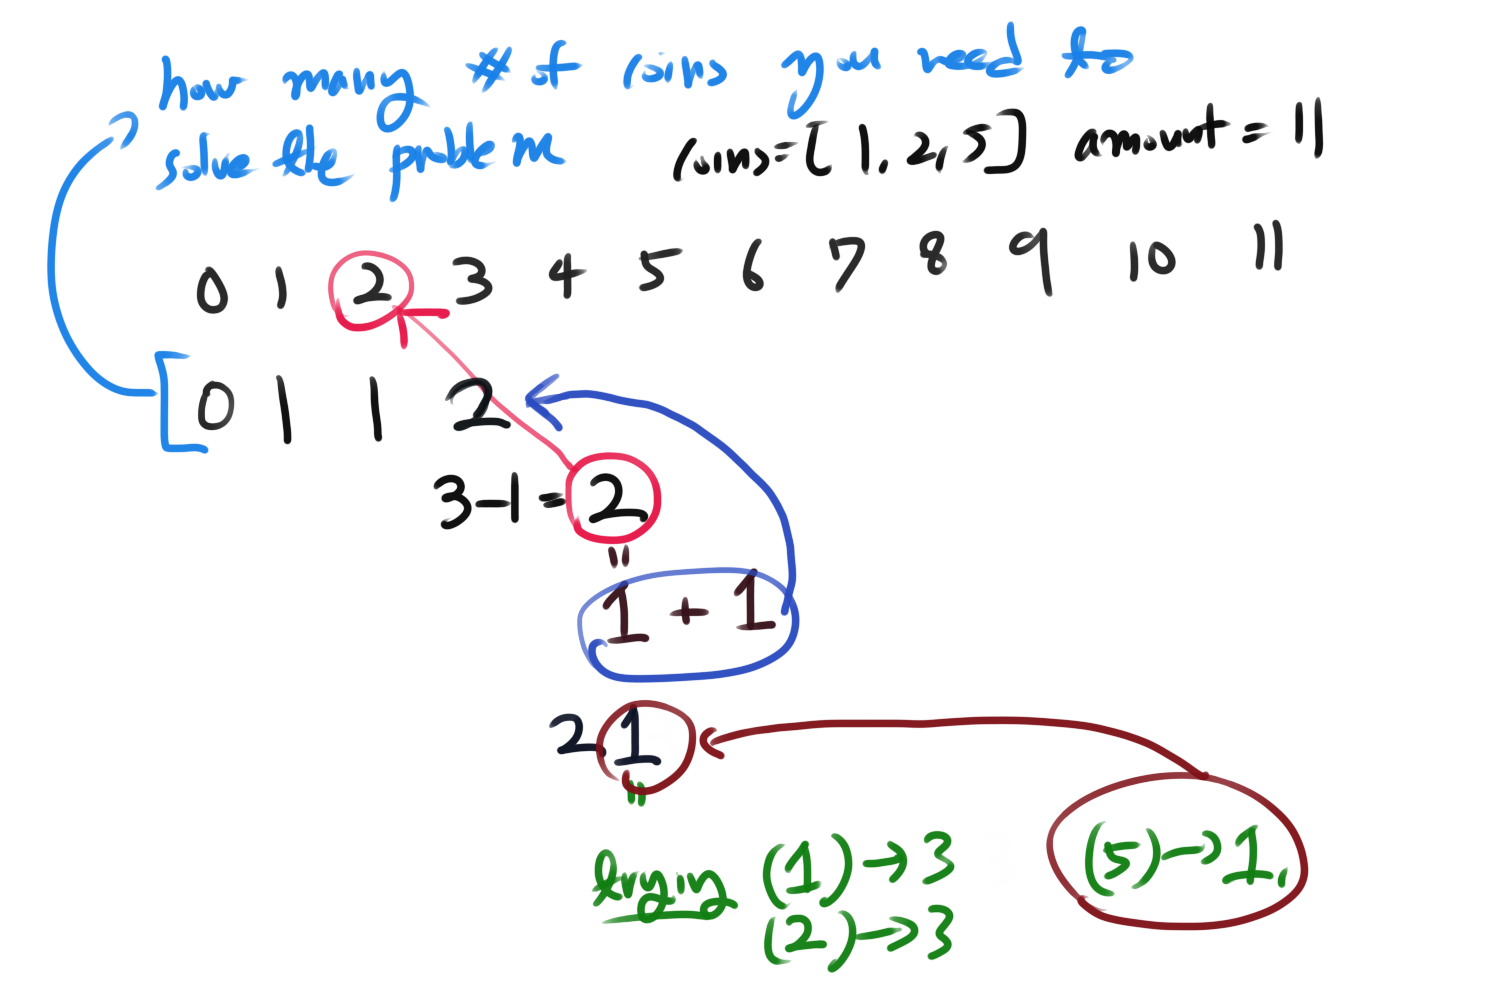 how many # of coins you need to
solve the problem
coins=[1,2,5] amount = 11
0 1 2 3 4 5 6 7 8 9 10 11
[0 1 1 2
3-1=2
"
1 + 1
2 1
"
trying (1)→3
(5)→1.
(2)→3